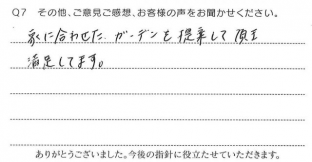 Q7 その他、ご意見ご感想、お客様の声をお聞かせください。
家に合わせた ガーデンを提案して頂き
満足してます。
ありがとうございました。今後の指針に役立たせていただきます。